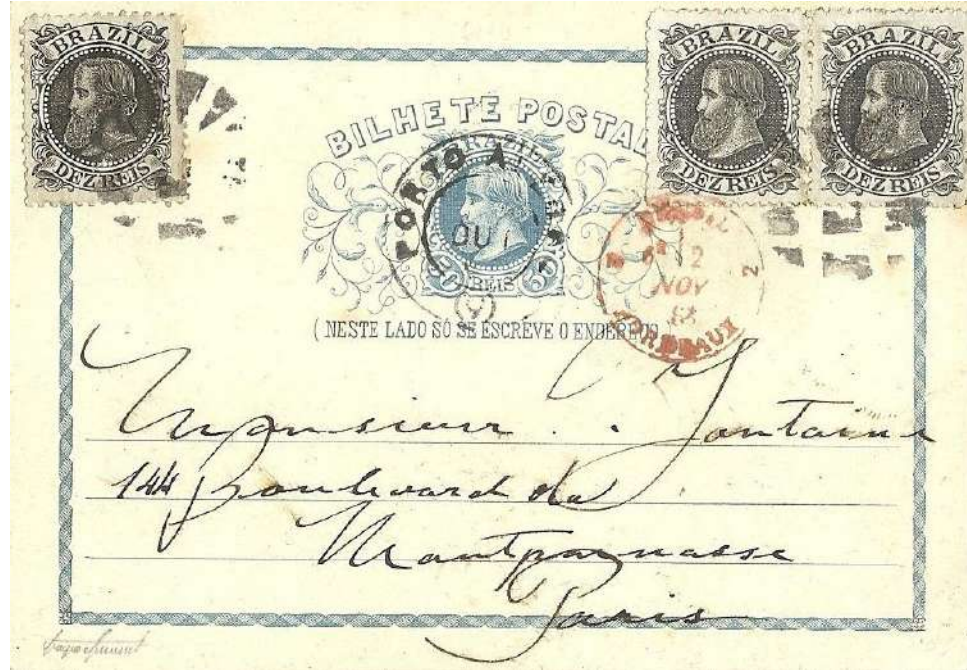 BRAZIL
DEZ REIS
BRAZIL
DEZ REIS
BRAZIL
DEZ REIS
BILHETE POSTAL
BRAZIL
50 REIS 50
PORTO
OUT
2
NOV
BORDEAUX
2
(NESTE LADO SÓ SE ESCREVE O ENDEREÇO)
Monsieur Fontaine
144 Boulevard du
Montparnasse
Paris